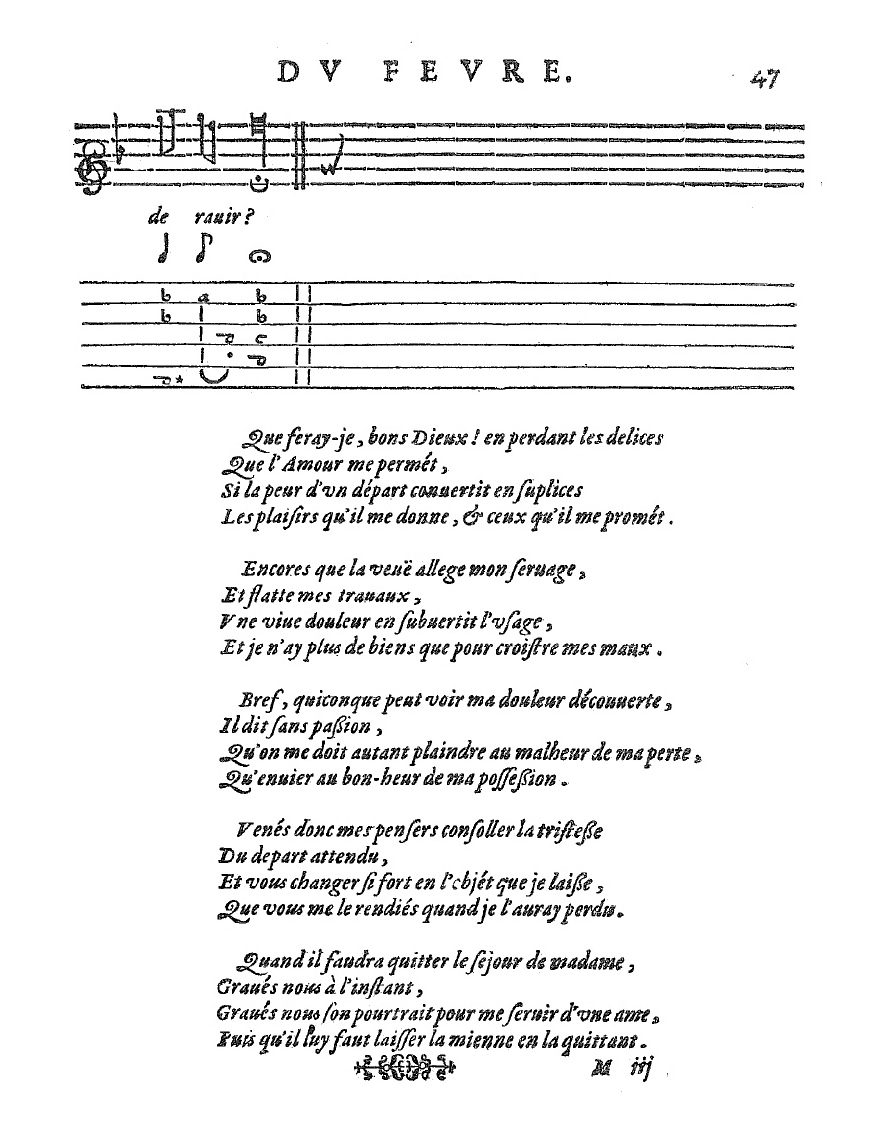 DV FEVRE. 47
de rauir?
b a b
b b
c
Que feray-je, bons Dieux! en perdant les delices
Que l'Amour me permét,
Si la peur d'vn départ conuertit en ſuplices
Les plaiſirs qu'il me donne, & ceux qu'il me promét.
Encores que la veuë allege mon ſeruage,
Et flatte mes trauaux,
Vne viue douleur en ſubuertit l'vſage,
Et je n'ay plus de biens que pour croiſtre mes maux.
Bref, quiconque peut voir ma douleur découuerte,
Il dit ſans paßion,
Qu'on me doit autant plaindre au malheur de ma perte,
Qu'enuier au bon-heur de ma poſſeßion.
Venés donc mes penſers conſoller la triſteße
Du depart attendu,
Et vous changer ſi fort en l'objét que je laiße,
Que vous me le rendiés quand je l'auray perdu.
Quand il faudra quitter le ſejour de madame,
Graués nous à l'inſtant,
Graués nous ſon pourtrait pour me ſeruir d'vne ame,
Puis qu'il luy faut laiſſer la mienne en la quittant.
M iij